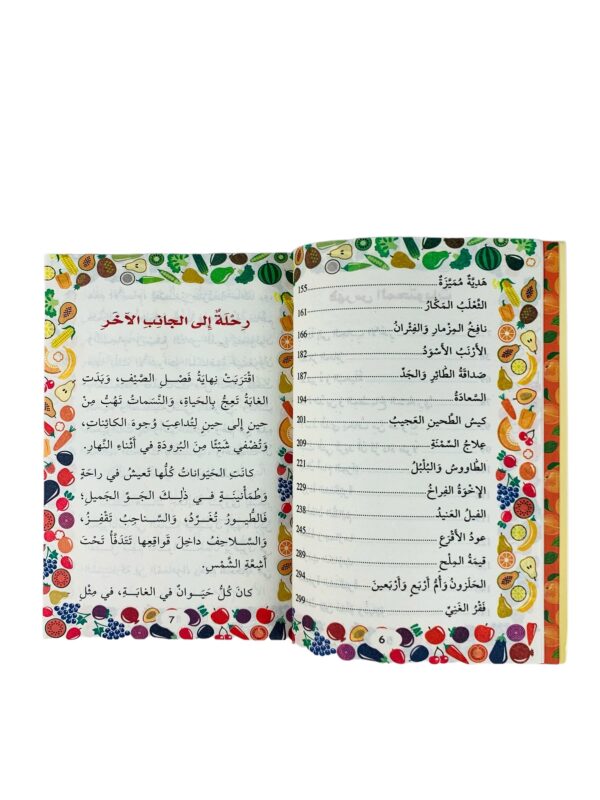 هَدِيَّةٌ مُمَيَّزَةٌ ........ 155
الثَّعْلَبُ المَكّارُ ........ 161
نافِخُ المِزْمارِ وَالفِئْرانُ ........ 166
الأَرْنَبُ الأَسْوَدُ ........ 182
صَداقَةُ الطّائِرِ وَالجَدِّ ........ 187
السَّعادَةُ ........ 194
كيسُ الطَّحينِ العَجيبُ ........ 201
عِلاجُ السِّمْنَةِ ........ 209
الطّاووسُ وَالبُلْبُلُ ........ 221
الإِخْوَةُ الفِراخُ ........ 229
الفيلُ العَنيدُ ........ 238
عودُ الأَقْرَعِ ........ 245
قيمَةُ المِلْحِ ........ 289
الحَلَزونُ وَأُمُّ أَرْبَعٍ وَأَرْبَعينَ ........ 294
فَقْرُ الغَنِيِّ ........ 299
6
رِحْلَةٌ إِلى الجانِبِ الآخَرِ
اقْتَرَبَتْ نِهايَةُ فَصْلِ الصَّيْفِ، وَبَدَتِ
الغابَةُ تَعِجُّ بِالحَياةِ، وَالنَّسَماتُ تَهُبُّ مِنْ
حينٍ إِلى حينٍ لِتُداعِبَ وُجوهَ الكائِناتِ،
وَتُضْفي شَيْئًا مِنَ البُرودَةِ في أَثْناءِ النَّهارِ.
كانَتِ الحَيَواناتُ كُلُّها تَعيشُ في راحَةٍ
وَطُمَأْنينَةٍ في ذٰلِكَ الجَوِّ الجَميلِ؛
فَالطُّيورُ تُغَرِّدُ، وَالسَّناجِبُ تَقْفِزُ،
وَالسَّلاحِفُ داخِلَ قَواقِعِها تَتَدَفَّأُ تَحْتَ
أَشِعَّةِ الشَّمْسِ.
كانَ كُلُّ حَيَوانٍ في الغابَةِ، في مِثْلِ
7